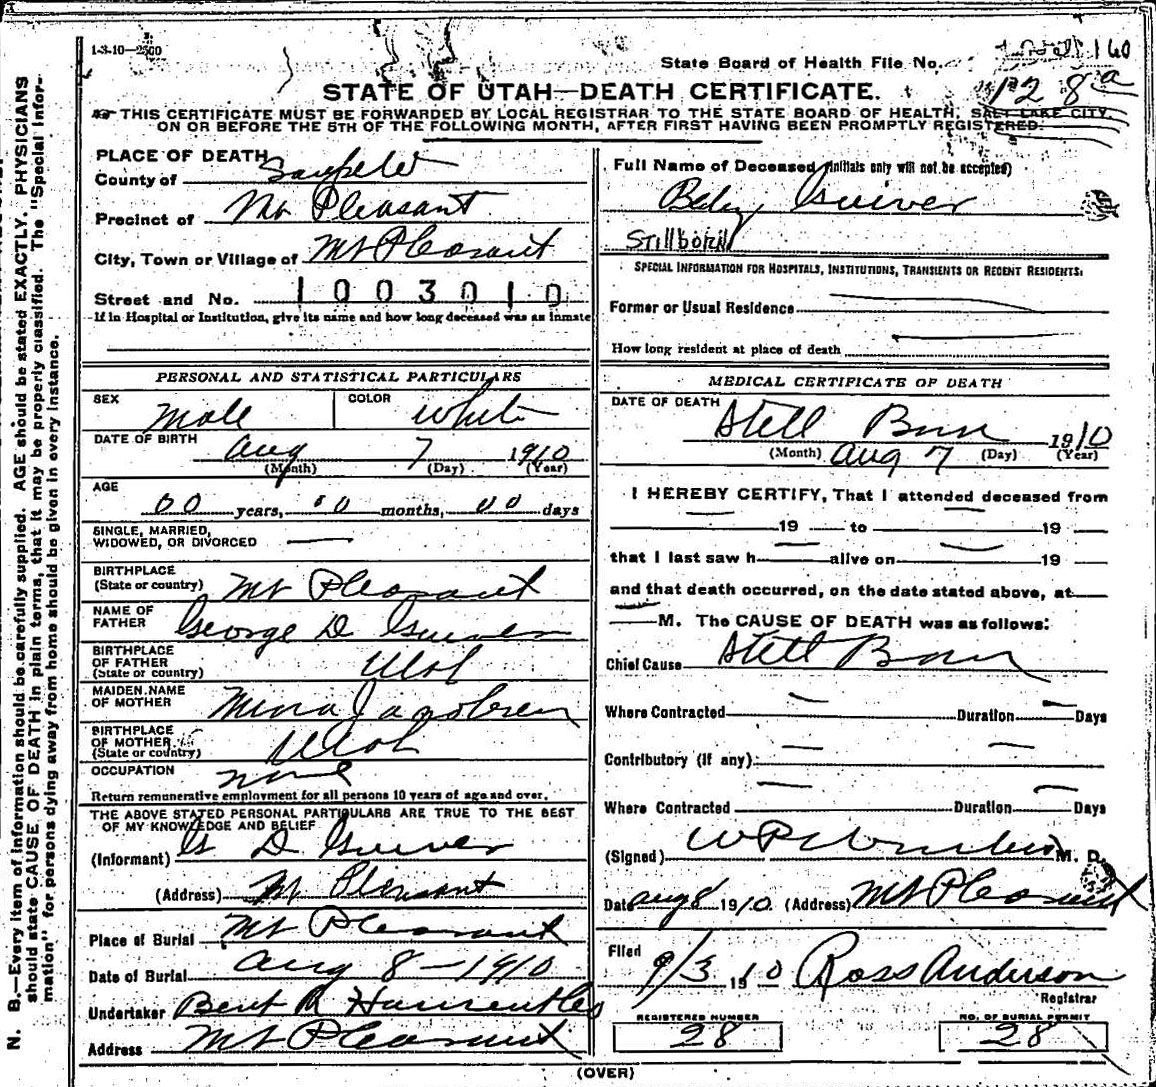 1-3-10-2500
State Board of Health File No.
128a
STATE OF UTAH—DEATH CERTIFICATE.
THIS CERTIFICATE MUST BE FORWARDED BY LOCAL REGISTRAR TO THE STATE BOARD OF HEALTH, SALT LAKE CITY,
ON OR BEFORE THE 5TH OF THE FOLLOWING MONTH, AFTER FIRST HAVING BEEN PROMPTLY REGISTERED.
PLACE OF DEATH
County of Sanpete
Precinct of Mt Pleasant
City, Town or Village of Mt Pleasant
Street and No. 1003010
If in Hospital or Institution, give its name and how long deceased was an inmate
PERSONAL AND STATISTICAL PARTICULARS
SEX Male COLOR White
DATE OF BIRTH Aug 7 1910
(Month) (Day) (Year)
AGE
00 years, 00 months, 00 days
SINGLE, MARRIED,
WIDOWED, OR DIVORCED —
BIRTHPLACE
(State or country) Mt Pleasant
NAME OF
FATHER George D Guiver
BIRTHPLACE
OF FATHER
(State or country) Utah
MAIDEN NAME
OF MOTHER Mina Jacobsen
BIRTHPLACE
OF MOTHER
(State or country) Utah
OCCUPATION none
Return remunerative employment for all persons 10 years of age and over.
THE ABOVE STATED PERSONAL PARTICULARS ARE TRUE TO THE BEST
OF MY KNOWLEDGE AND BELIEF
(Informant) G D Guiver
(Address) Mt Pleasant
Place of Burial Mt Pleasant
Date of Burial Aug 8 - 1910
Undertaker Bent R
Address Mt Pleasant
Full Name of Deceased (initials only will not be accepted)
Baby Guiver
Stillborn
SPECIAL INFORMATION FOR HOSPITALS, INSTITUTIONS, TRANSIENTS OR RECENT RESIDENTS.
Former or Usual Residence
How long resident at place of death
MEDICAL CERTIFICATE OF DEATH
DATE OF DEATH Still Born 1910
(Month) Aug 7 (Day) (Year)
I HEREBY CERTIFY, That I attended deceased from
19 to 19
that I last saw h alive on 19
and that death occurred, on the date stated above, at
M. The CAUSE OF DEATH was as follows:
Chief Cause Still Born
Where Contracted Duration Days
Contributory (if any)
Where Contracted Duration Days
(Signed) M. D.
Date Aug 8 1910 (Address) Mt Pleasant
Filed 9/3 1910 Ross Anderson
Registrar
REGISTERED NUMBER
28
NO. OF BURIAL PERMIT
28
(OVER)
N. B.—Every item of information should be carefully supplied. AGE should be stated EXACTLY. PHYSICIANS
should state CAUSE OF DEATH in plain terms, that it may be properly classified. The "Special Infor-
mation" for persons dying away from home should be given in every instance.